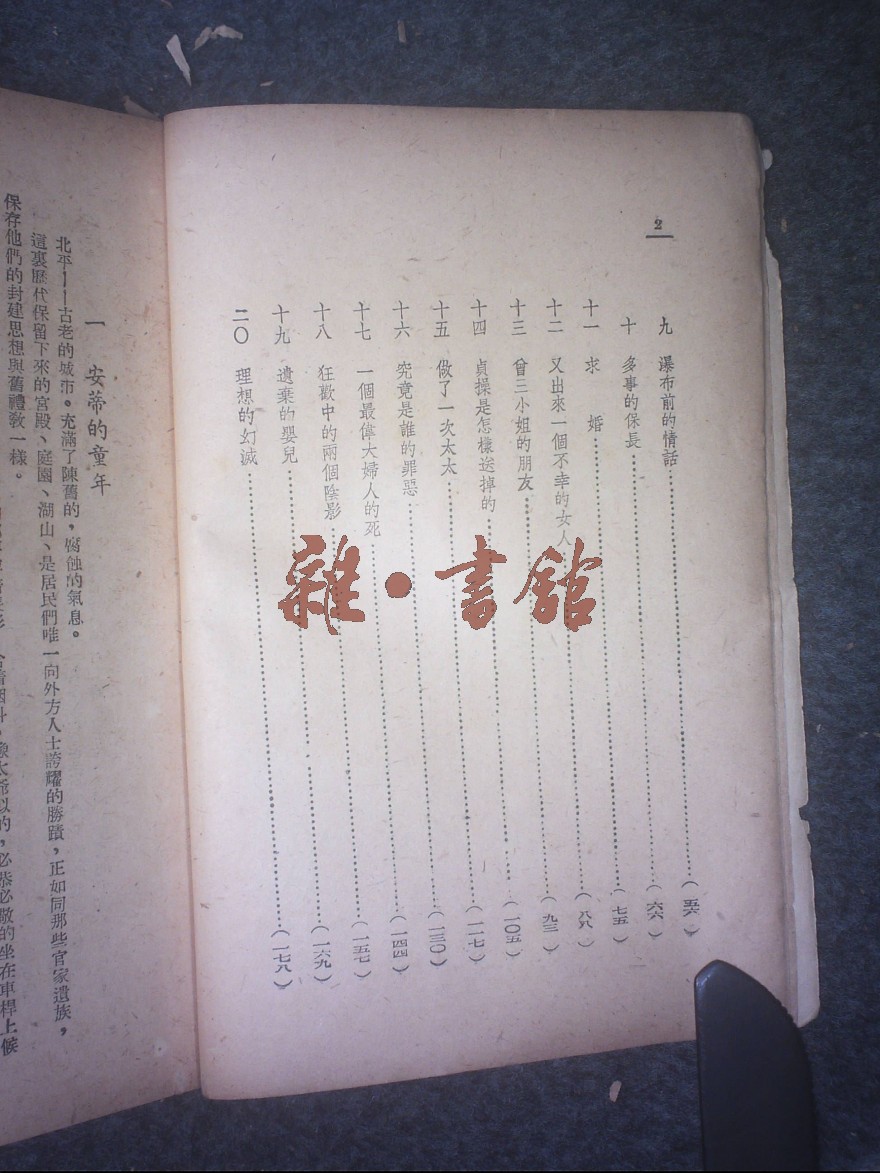 2
九 瀑布前的情話……(五六)
十 多事的保長……(六六)
十一 求 婚……(七五)
十二 又出來一個不幸的女人……(八八)
十三 曾三小姐的朋友……(九三)
十四 貞操是怎樣送掉的……(一〇五)
十五 做了一次太太……(一一七)
十六 究竟是誰的罪惡……(一三〇)
十七 一個最偉大婦人的死……(一四四)
十八 狂歡中的兩個陰影……(一五七)
十九 遺棄的嬰兒……(一六九)
二〇 理想的幻滅……(一七八)
雜·書館
一 安蒂的童年
北平——古老的城市。充滿了陳舊的，腐蝕的氣息。
這裏歷代保留下來的宮殿、庭園、湖山、是居民們唯一向外方人士誇耀的勝蹟，正如同那些官家遺族，
保存他們的封建思想與舊禮教一樣。
必恭必敬的坐在車桿上候